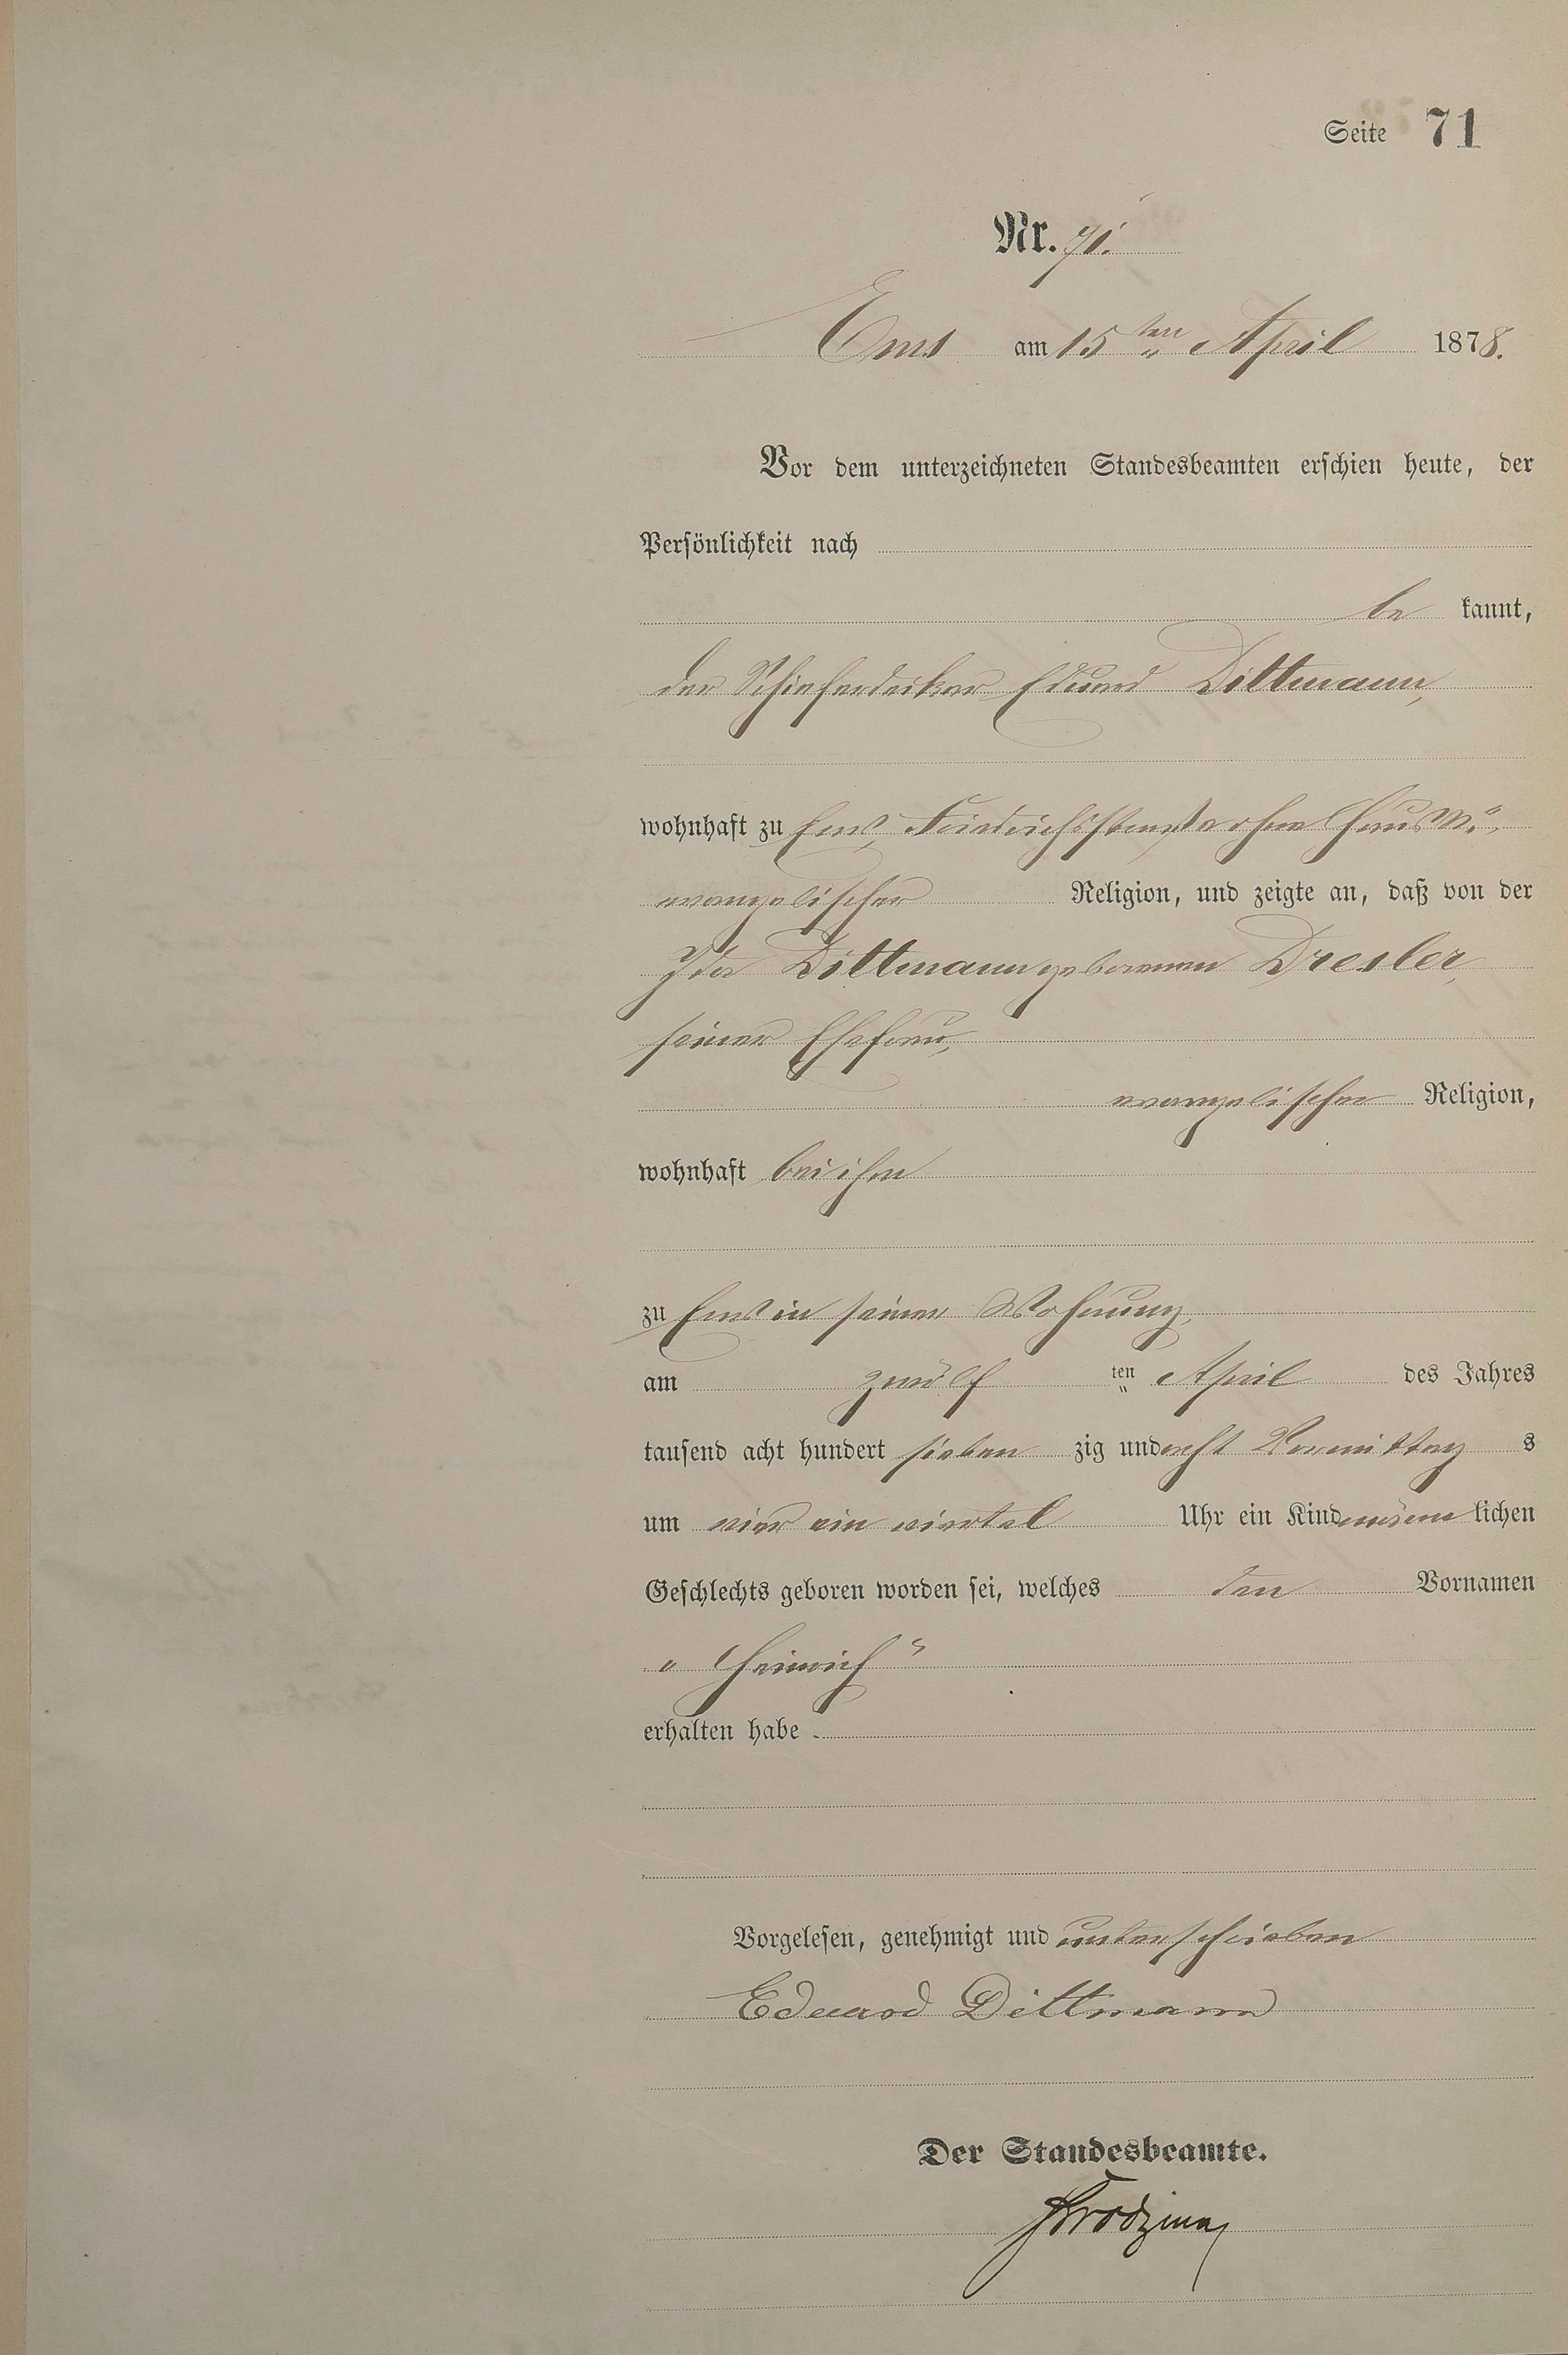 Seite 71
Nr. 71.
Ems am 15ten April 1878.
Vor dem unterzeichneten Standesbeamten erschien heute, der
Persönlichkeit nach
be kannt,
der Schieferdecker Eduard Dittmann,
wohnhaft zu Ems, Friedrichsstraße ohne Haus No,
evangelischer Religion, und zeigte an, daß von der
Ida Dittmann geborenen Dresler,
seiner Ehefrau,
evangelischer Religion,
wohnhaft bei ihm
zu Ems in seiner Wohnung,
am zwölf ten April des Jahres
tausend acht hundert sieben zig und acht Vormittag s
um vier ein viertel Uhr ein Kind männ lichen
Geschlechts geboren worden sei, welches den Vornamen
„Heinrich“
erhalten habe.
Vorgelesen, genehmigt und unterschrieben
Eduard Dittmann
Der Standesbeamte.